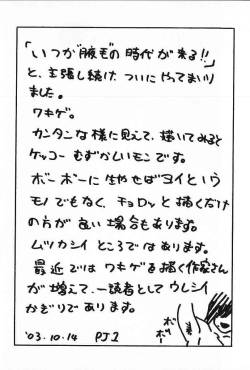 「いつか腋毛の時代が来る!!」
と、主張し続け、ついにやってまいり
ました。
ワキゲ。
カンタンな様に見えて、描いてみると
ケッコーむずかしいモンです。
ボーボーに生やせばヨイという
モノでもなく、チョロッと描くだけ
の方が良い場合もあります。
ムツカシイところではあります。
最近ではワキゲを描く作家さん
が増えて、一読者としてウレシイ
かぎりであります。
ボボー
'03.10.14 PJ1